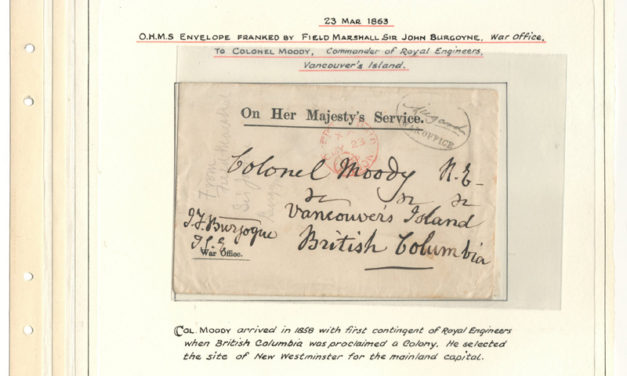 23 MAR 1863
O.H.M.S ENVELOPE FRANKED BY FIELD MARSHALL SIR JOHN BURGOYNE, WAR OFFICE,
TO COLONEL MOODY, COMMANDER OF ROYAL ENGINEERS,
VANCOUVER'S ISLAND.
On Her Majesty's Service.
WAR OFFICE
23
From
Colonel Moody R.E-
Vancouver's Island
British Columbia
J.F. Burgoyne
War Office.
COL. MOODY arrived in 1858 with first contingent of Royal Engineers
when British Columbia was proclaimed a Colony. He selected
the site of New Westminster for the mainland capital.